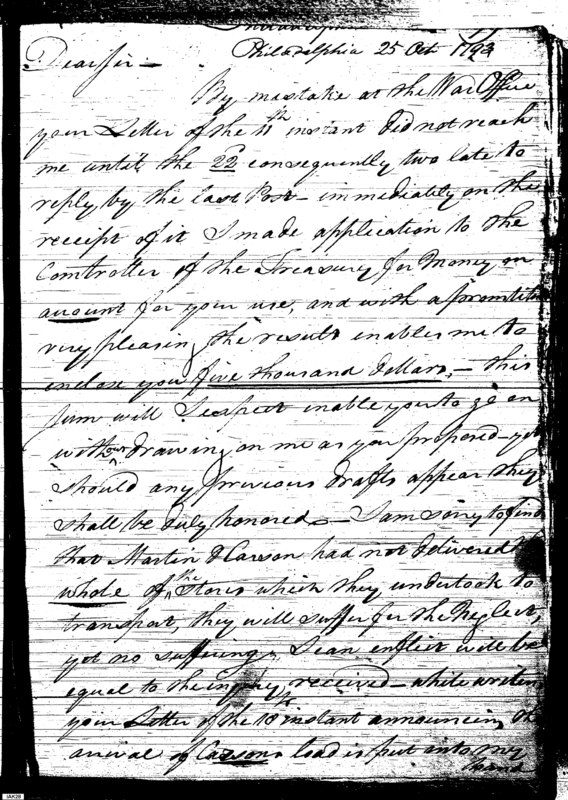 Philadelphia 25 Oct 1792
Dear Sir —
By mistake at the War Office
your Letter of the 11th instant did not reach
me until the 22d consequently two late to
reply by the last Post — immediately on the
receipt of it I made application to the
Comtroller of the Treasury for Money on
account for your use, and with a promtitude
very pleasing the result enables me to
enclose you five thousand dollars, — this
sum will I expect inable you to go on
without drawing on me as you proposed — yet
should any previous drafts appear they
shall be duly honored — I am sorry to find
that Martin & Carson had not delivered the
whole of the Stores which they undertook to
transport, they will suffer for the Neglect,
yet no suffering I can inflict will be
equal to the injury received — while writing
your Letter of the 18th instant announcing the
arrival of Carsons load is put into my
hands
IAK28